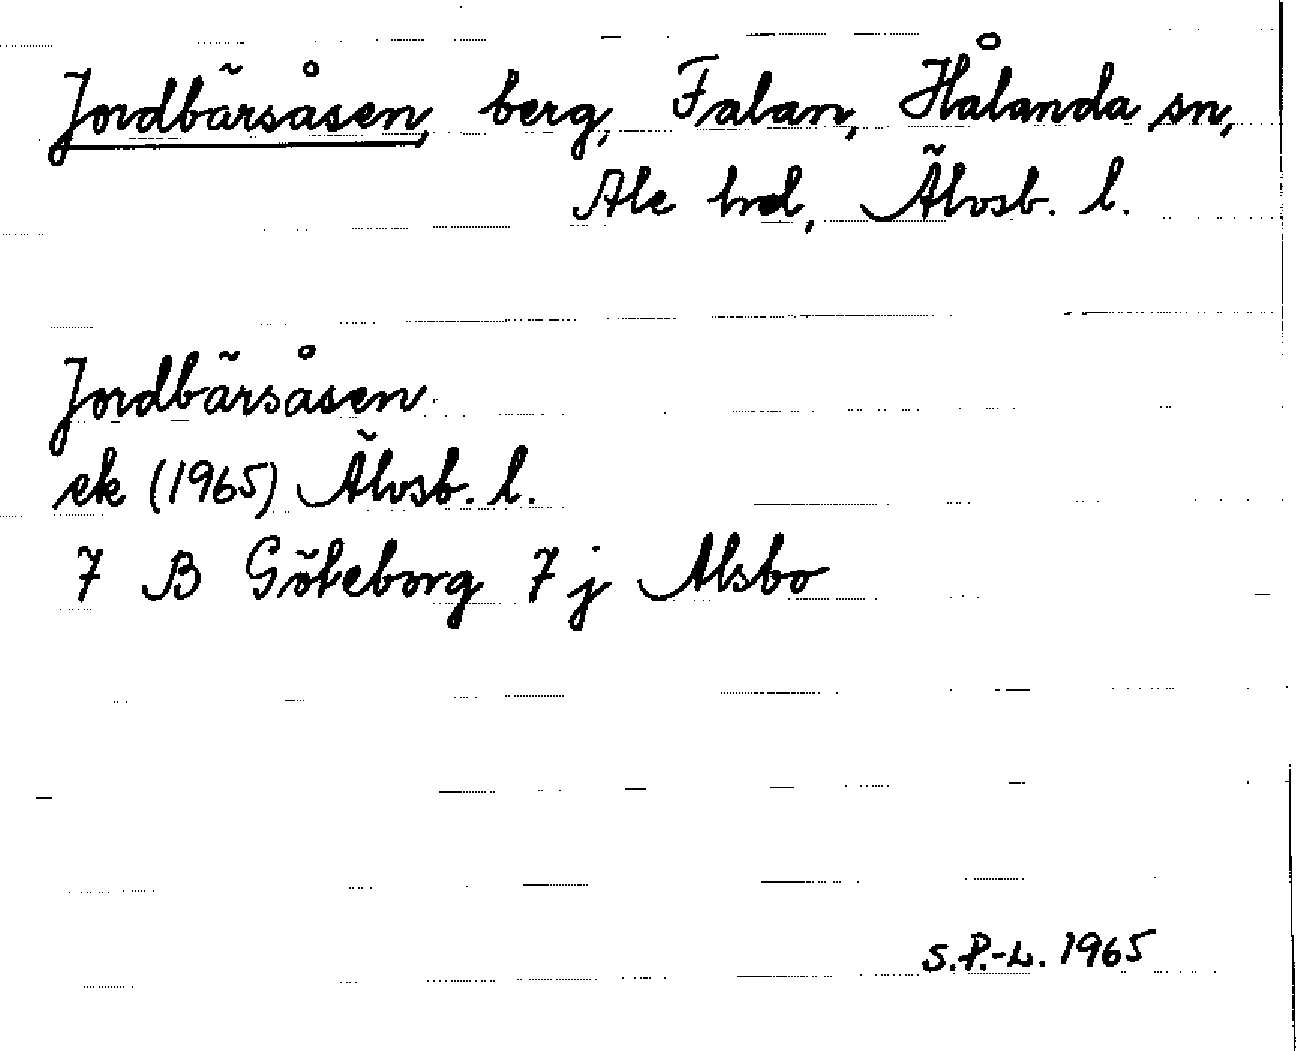 Jordbärsåsen, berg, Falan, Hålanda sn,
Ale hd, Älvsb. l.
Jordbärsåsen
ek (1965) Älvsb. l.
7 B Göteborg 7 j Alsbo
S.P.-L. 1965